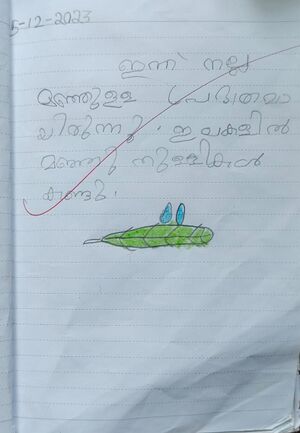 5-12-2023
ഇന്ന് നല്ല
മഞ്ഞുള്ള പ്രഭാതമാ
യിരുന്നു. ഇലകളിൽ
മഞ്ഞു തുള്ളികൾ
കണ്ടു.